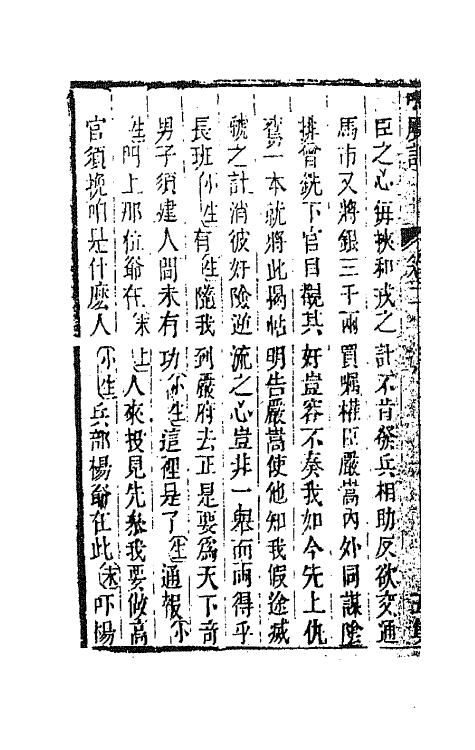 臣之心每挾和戎之計不肯發兵相助反欲交通
馬市又將銀三千兩買囑權臣嚴嵩內外同謀陷
排曾銑下官目覩其奸豈容不奏我如今先上仇
鸞一本就將此揭帖明告嚴嵩使他知我假途滅
虢之計消彼奸險逆流之心豈非一舉而兩得乎
長班小生有生隨我到嚴府去正是要爲天下奇
男子須建人間未有功小生這裡是了生通報小
生門上那位爺在末上人來投見先叅我要做高
官須挽咱是什麽人小生兵部楊爺在此末吓楊